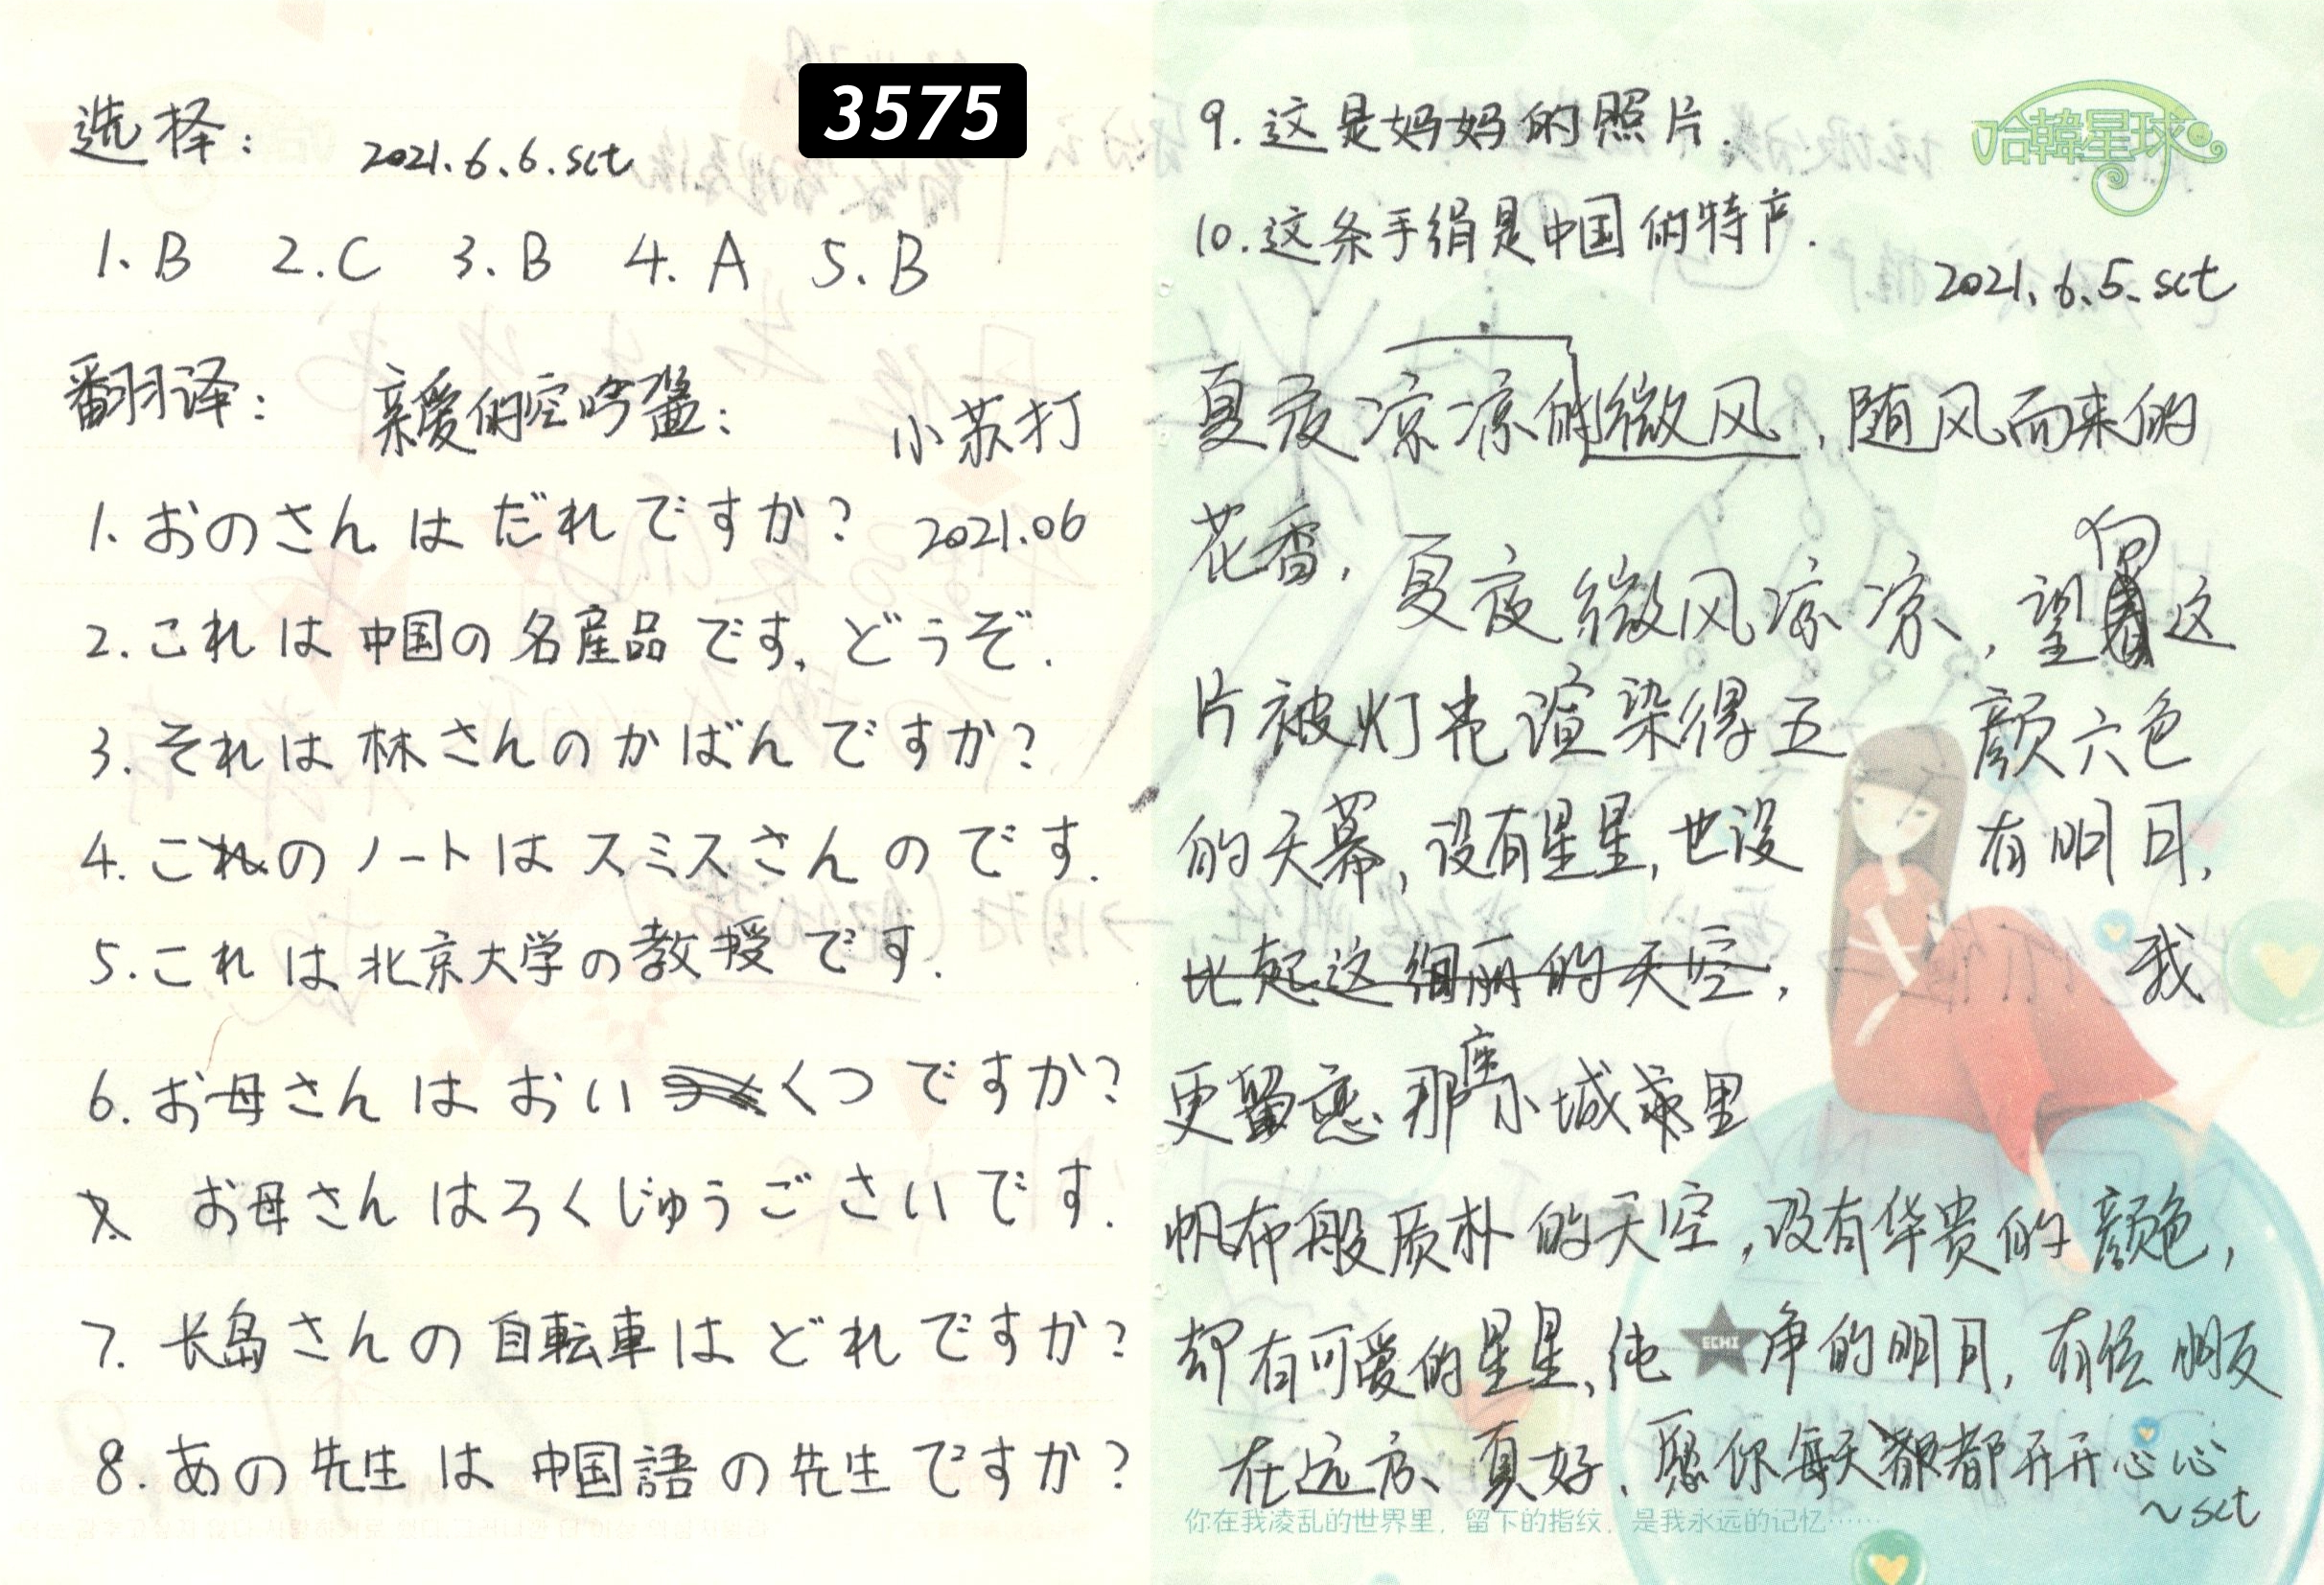 3575
选择：
2021.6.6.sct
1.B 2.C 3.B 4.A 5.B
翻译：
亲爱的空
小苏打
2021.06
1.おのさんはだれですか？
2.これは中国の名産品です。どうぞ.
3.それは林さんのかばんですか？
4.このノートはスミスさんのです.
5.これは北京大学の教授です.
6.お母さんはおいくつですか？
お母さんはろくじゅうごさいです.
7.长島さんの自転車はどれですか？
8.あの先生は中国語の先生ですか？
哈韓星球
9.这是妈妈的照片.
10.这条手绢是中国的特产.
2021.6.5.sct
夏夜凉凉的微风，随风而来的
花香，夏夜微风凉凉，望向这
片被灯光渲染得五颜六色
的天幕，没有星星，也没有明月，
比起这绚丽的天空，我
更留恋那座小城里
帆布般质朴的天空，没有华贵的颜色，
却有可爱的星星，纯净的明月，有位朋友
ECHI
在远方、真好，愿你每天都开开心心
~sct
你在我凌乱的世界里，留下的指纹，是我永远的记忆……